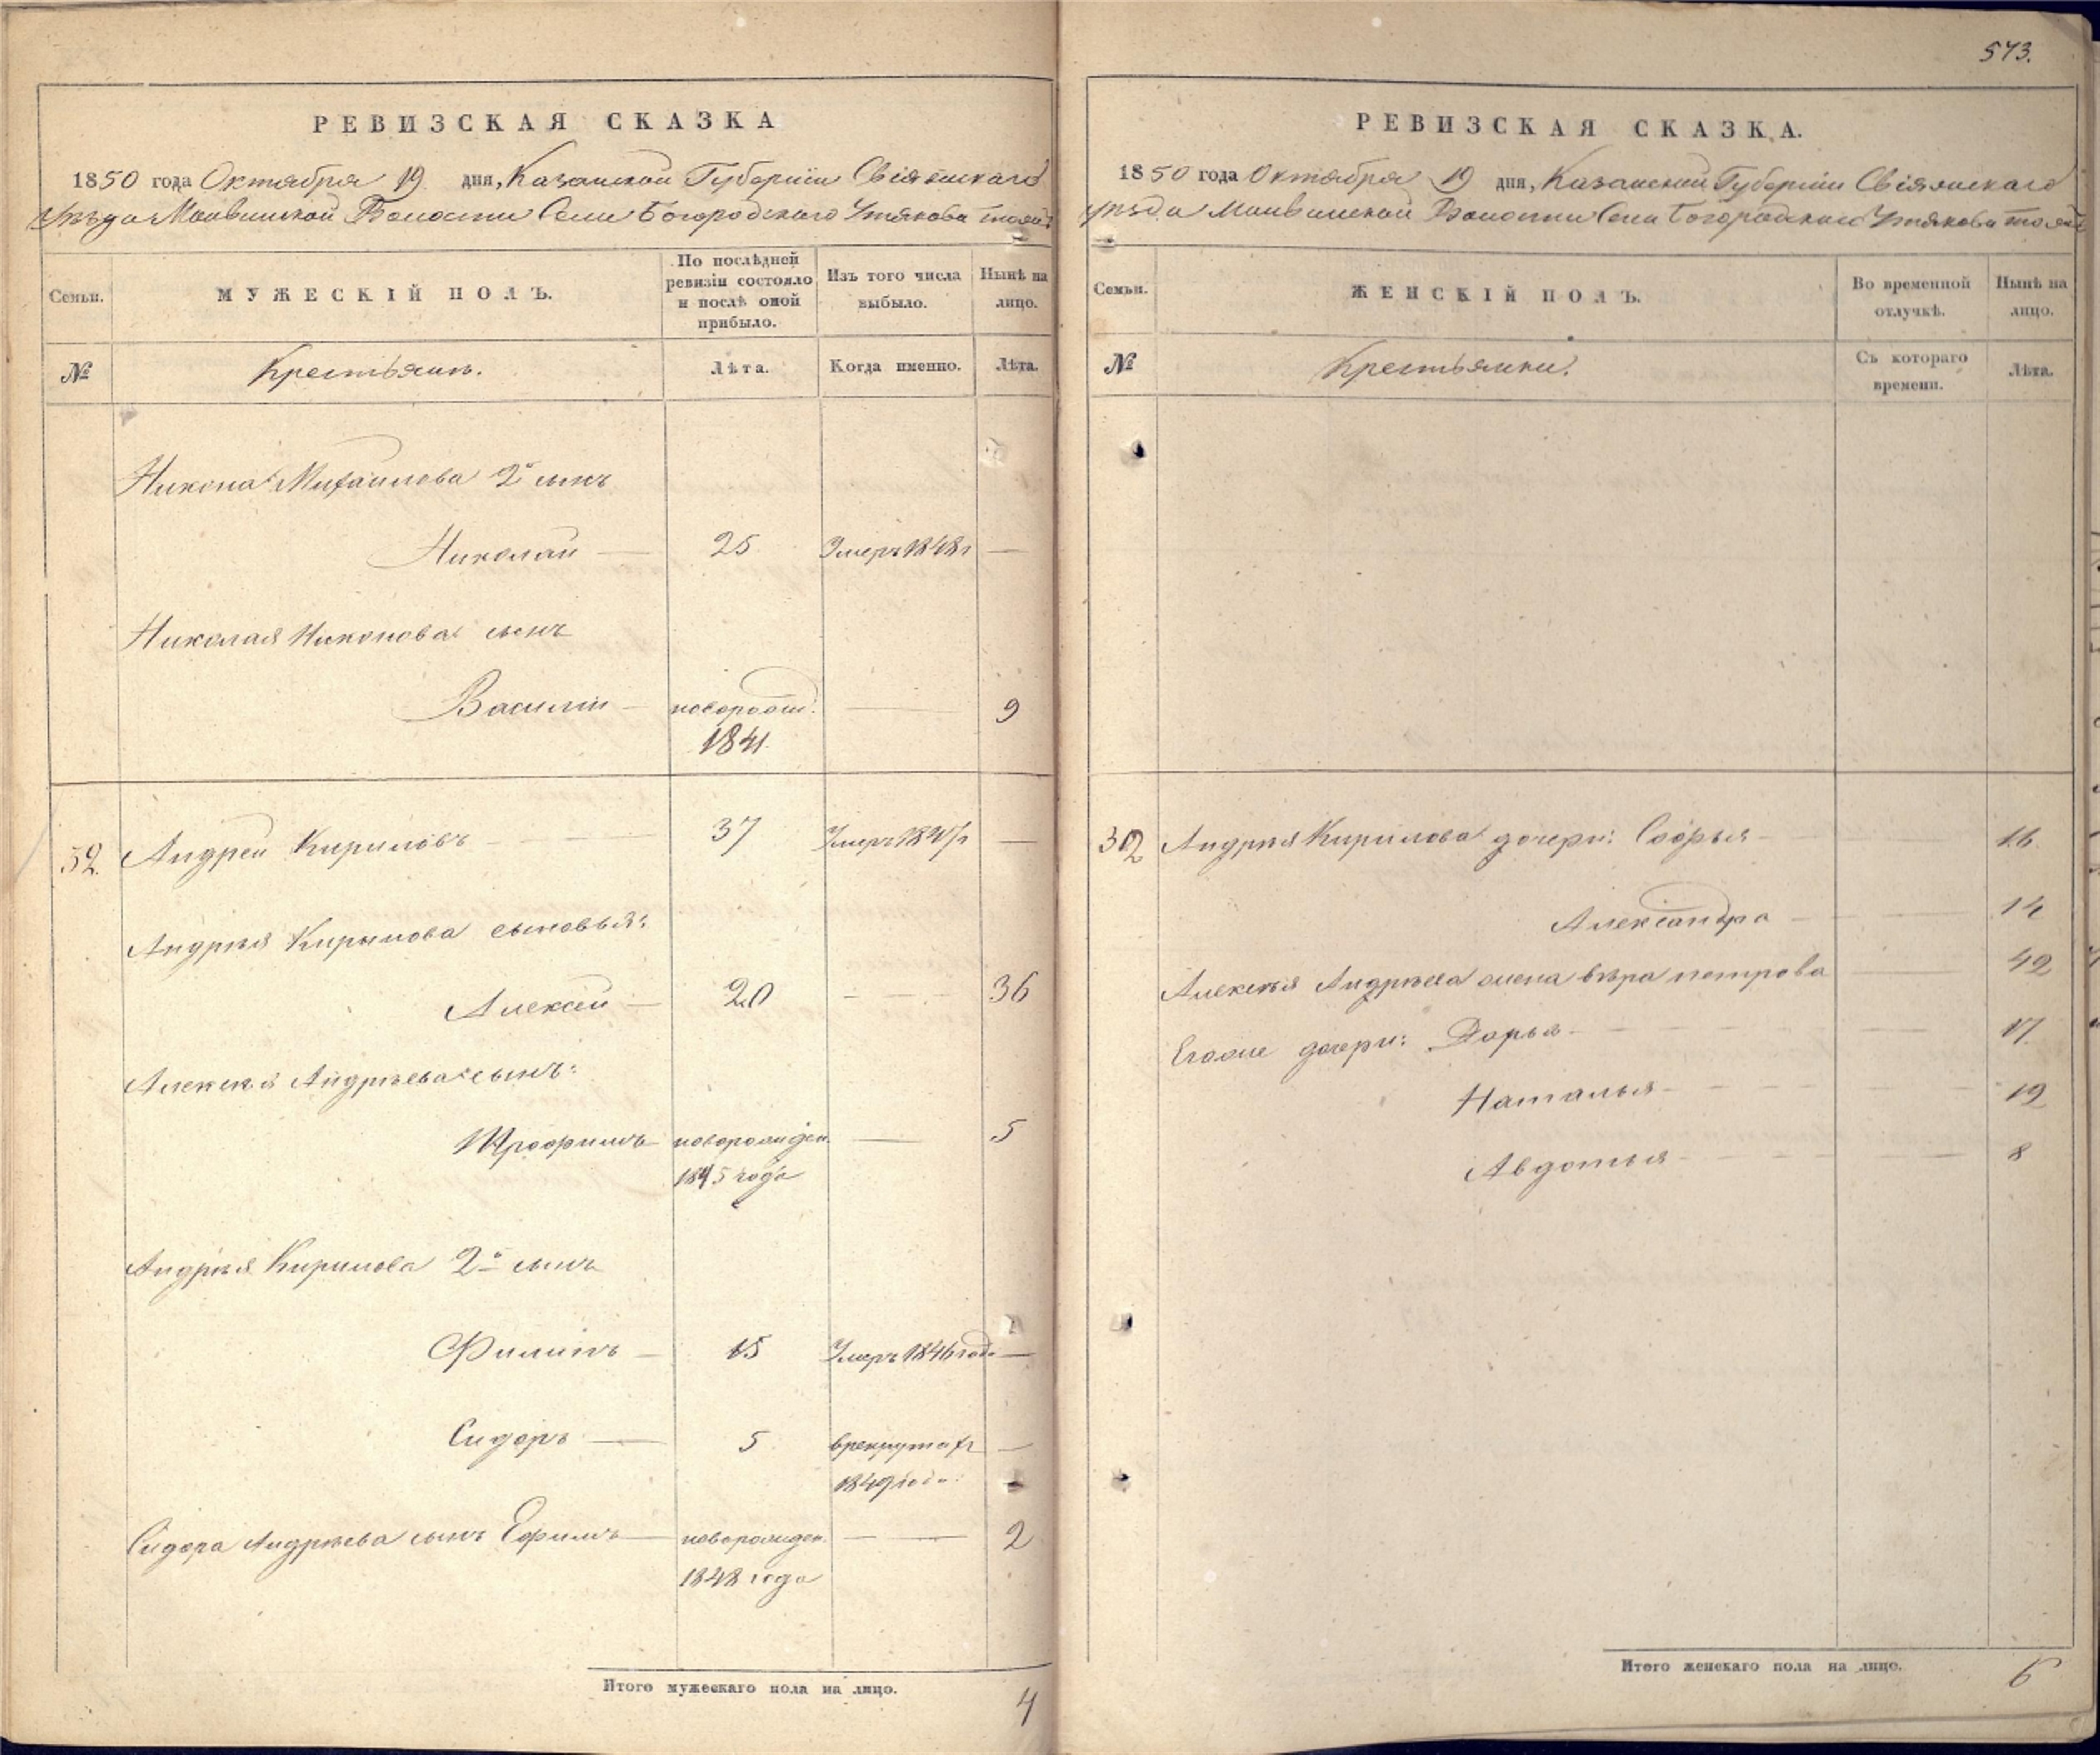 573.
РЕВИЗСКАЯ СКАЗКА
1850 года Октября 19 дня, Казанской Губернiи Свiяжскаго
Уѣзда Волости Села Богородскаго Утякова тожъ
Семьи.
МУЖЕСКIЙ ПОЛЪ.
По послѣдней ревизiи состояло и послѣ оной прибыло.
Изъ того числа выбыло.
Нынѣ на лицо.
№
Крестьяне.
Лѣта.
Когда именно.
Лѣта.
Никона Михайлова 2й сынъ
Николай 25 Умеръ 1848г
Николая Никонова сынъ
Василiй новорожд. 9
1841
32. Андрей Кириловъ 37 Умеръ 1847г
Андрея Кирилова сыновья:
Алексей 20 36
Алексѣя Андрѣева сынъ:
Трофимъ новорожден. 5
1845 года
Андрѣя Кирилова 2й сынъ
Филипъ 15 Умеръ 1846 года
Сидоръ 5 врекрутахъ
1849 года
Сидора Андрѣева сынъ Ефимъ новорожден. 2
1848 года
Итого мужескаго пола на лицо. 4
РЕВИЗСКАЯ СКАЗКА.
1850 года Октября 19 дня, Казанской Губернiи Свiяжскаго
уѣзда Волости Села Богородскаго Утякова тожъ
Семьи.
ЖЕНСКIЙ ПОЛЪ.
Во временной отлучкѣ.
Нынѣ на лицо.
№
Крестьянки.
Съ котораго времени.
Лѣта.
32 Андрѣя Кирилова дочери: Софья 16
Александра 14
Алексѣя Андрѣева жена вѣра петрова 42
Егоже дочери: Дарья 17
Наталья 12
Авдотья 8
Итого женскаго пола на лицо. 6